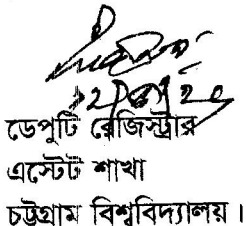 ডেপুটি রেজিস্ট্রার
এস্টেট শাখা
চট্টগ্রাম বিশ্ববিদ্যালয়।